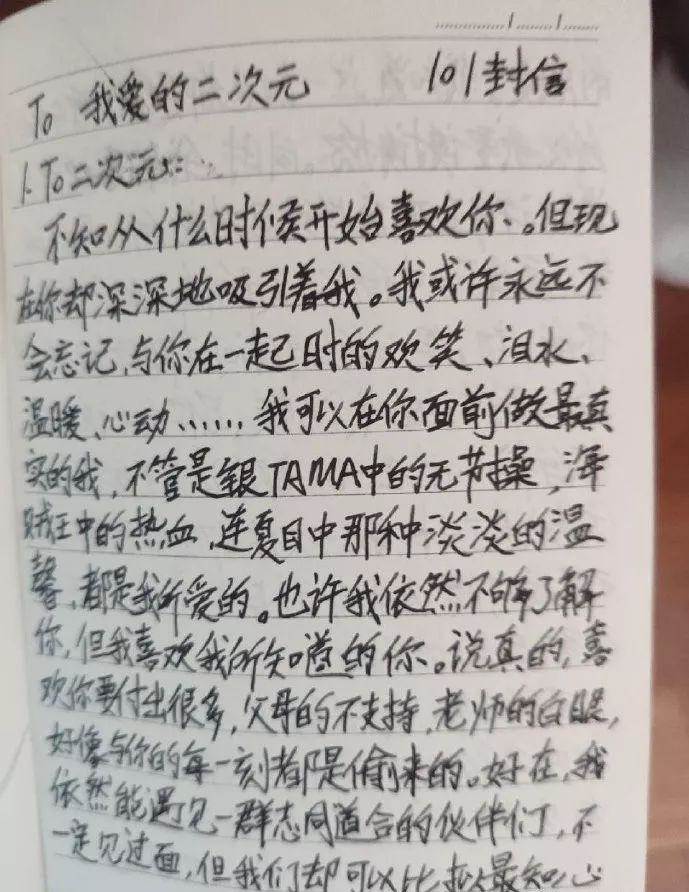 To 我爱的二次元 101封信
1. To二次元:
不知从什么时候开始喜欢你、。但现
在你却深深地吸引着我。我或许永远不
会忘记,与你在一起时的欢笑、泪水、
温暖、心动……我可以在你面前做最真
实的我,不管是银TAMA中的无节操,海
贼王中的热血,连夏目中那种淡淡的温
馨,都是我所爱的。也许我依然不够了解
你,但我喜欢我所知道的你。说真的,喜
欢你要付出很多,父母的不支持,老师的白眼,
好像与你的每一刻都是偷来的。好在,我
依然能遇见一群志同道合的伙伴们,不
一定见过面,但我们却可以比最知心